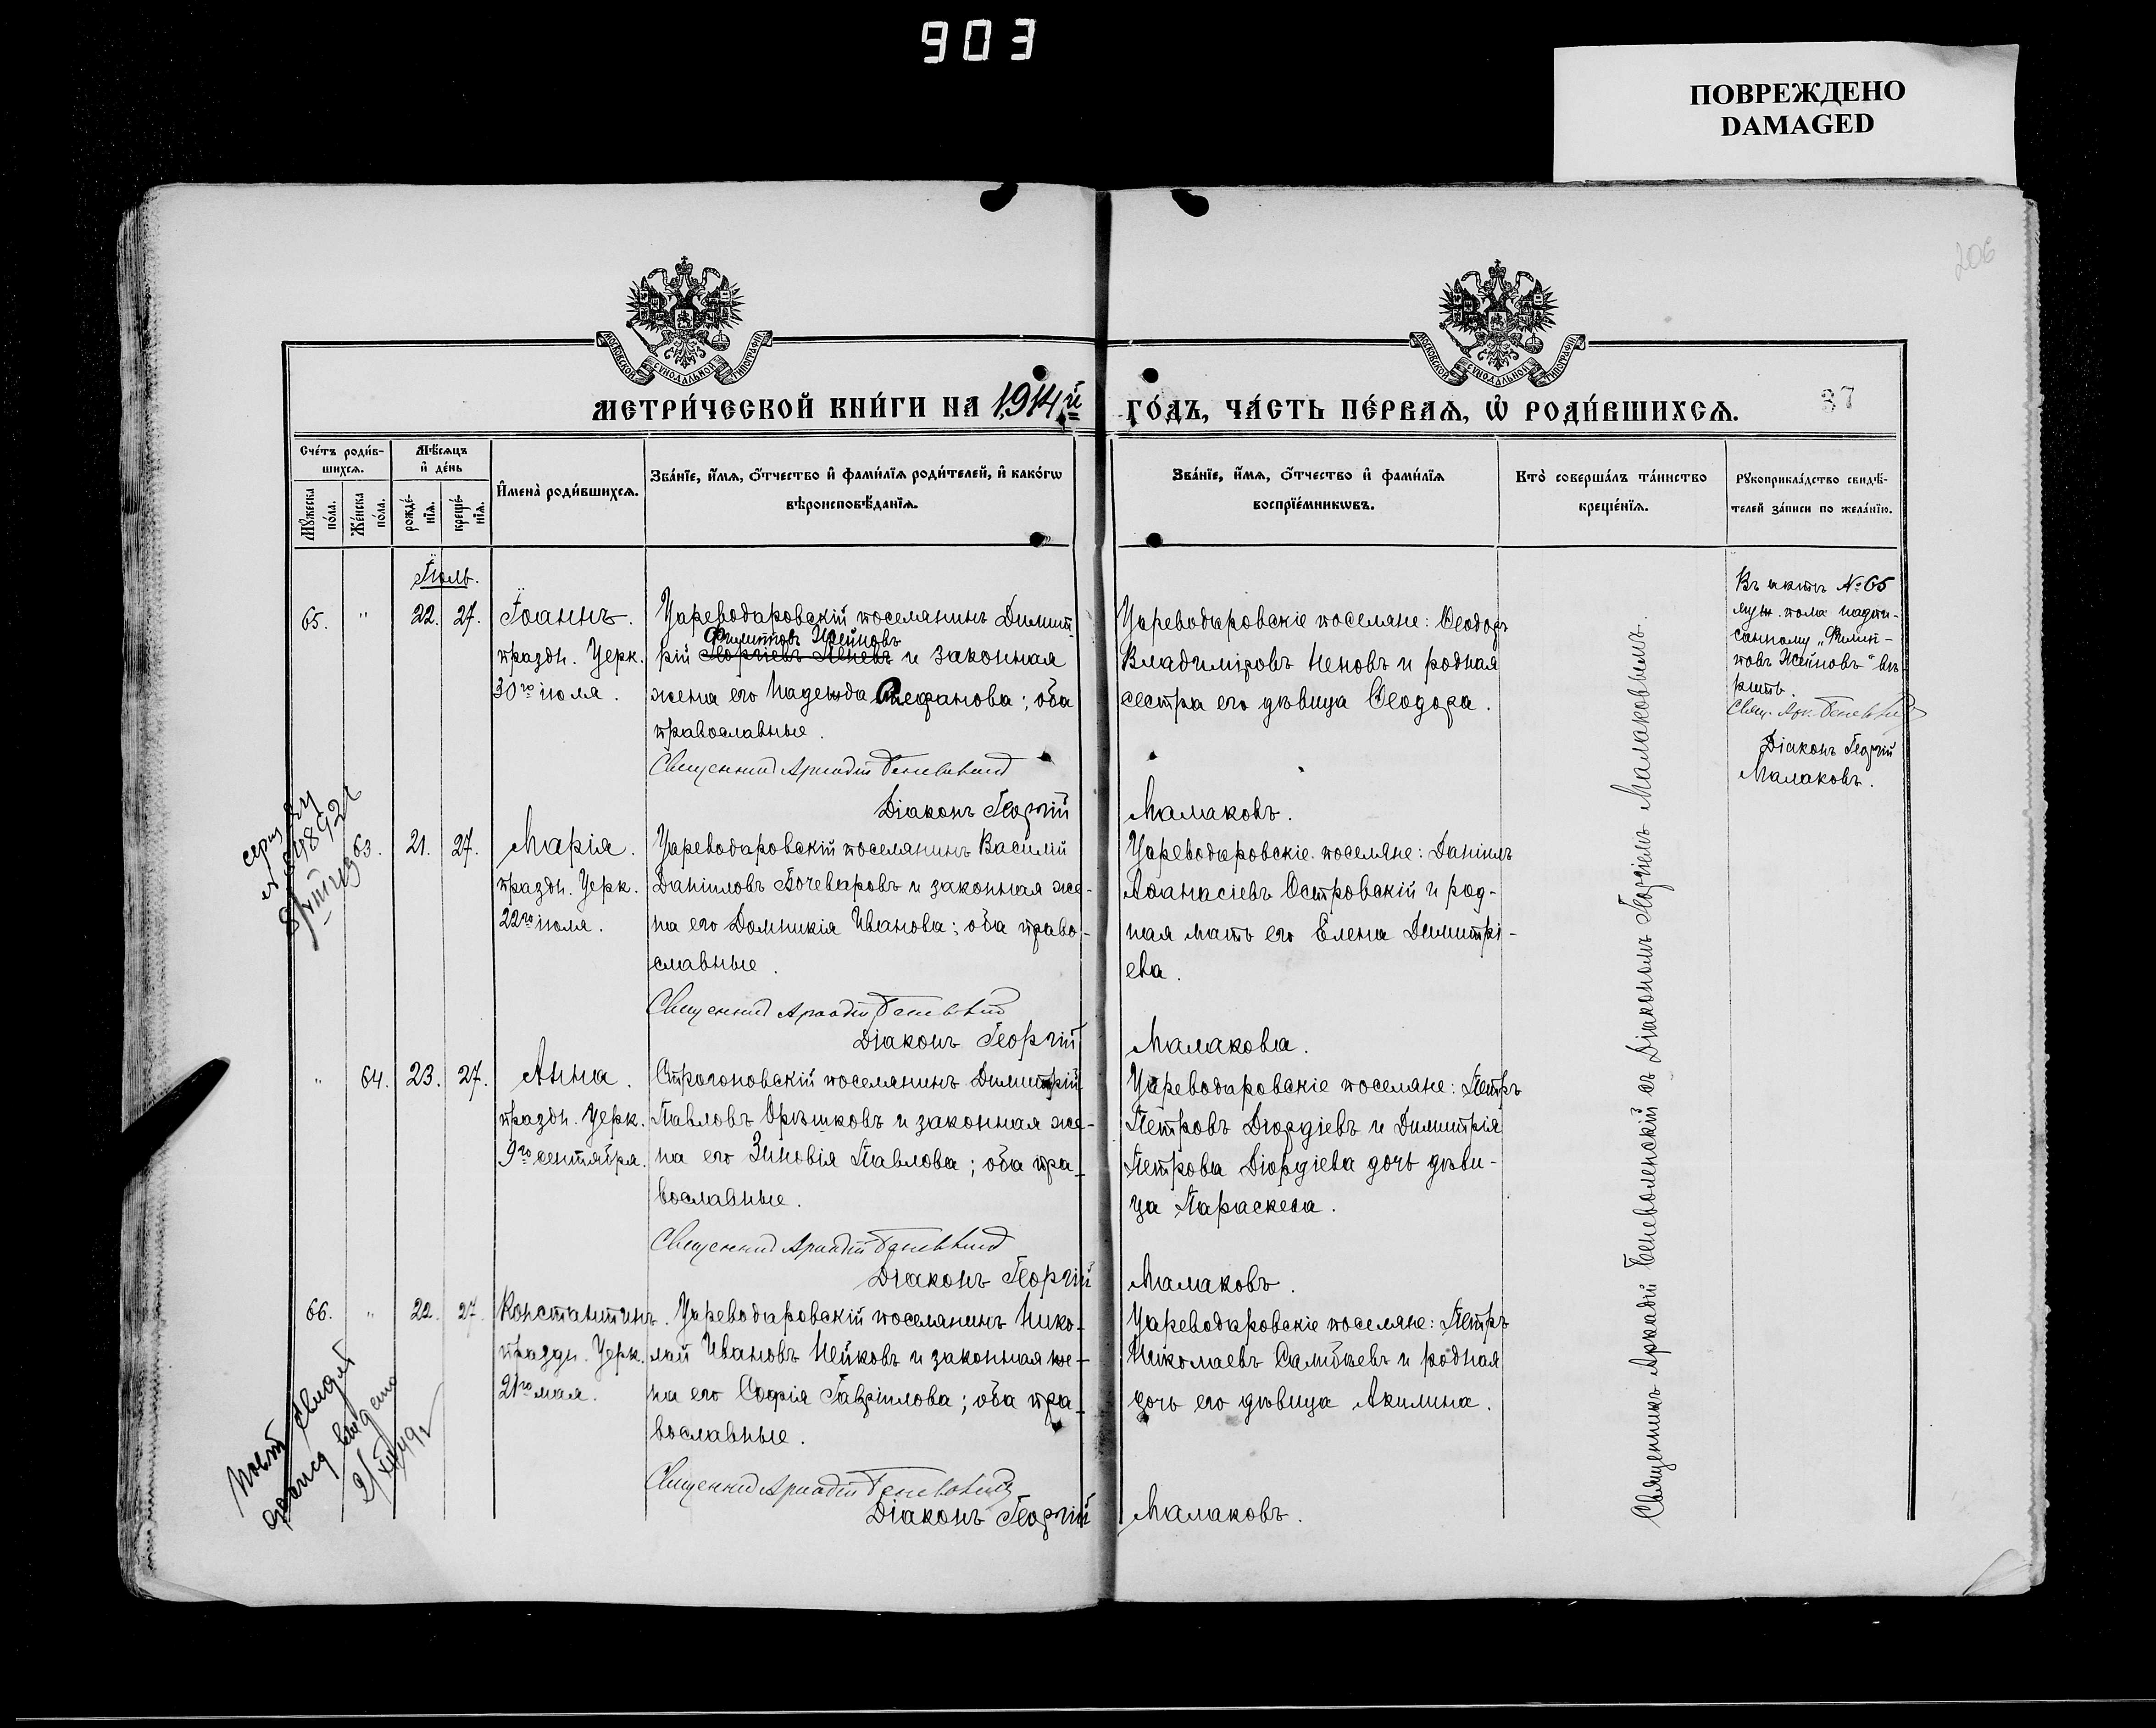 903
ПОВРЕЖДЕНО
DAMAGED
206
МОСКОВСКОЙ СѴНОДАЛЬНОЙ ТИПОГРАФІИ
МОСКОВСКОЙ СѴНОДАЛЬНОЙ ТИПОГРАФІИ
МЕТРИ́ЧЕСКОЙ КНИ́ГИ НА 1914й
ГО́ДЪ, ЧА́СТЬ ПЕ́РВАѦ, Ѡ҆ РОДИ́ВШИХСѦ.
37
Сче́тъ роди́в-
шихсѧ.
Мѣ́сѧцъ
и҆ де́нь
Мꙋ́жеска
по́ла.
Же́нска
по́ла.
рожде́-
нїѧ.
креще́-
нїѧ.
И҆мена̀ роди́вшихсѧ.
Зва́нїе, и҆́мѧ, ѻ҆́тчество и҆ фами́лїѧ роди́телей, и҆ како́гѡ
вѣроисповѣ́данїѧ.
Зва́нїе, и҆́мѧ, ѻ҆́тчество и҆ фами́лїѧ
воспрїе́мникѡвъ.
Кто̀ соверша́лъ та́инство
креще́нїѧ.
Рꙋкоприкла́дство свидѣ́-
телей за́писи по жела́нїю.
Іюль.
65. " 22. 27. Іоаннъ.
праздн. Церк.
30го іюля.
Цареводаровскій поселянинъ Димит-
Филиповъ Нейновъ
рій Георгіевъ Пеневъ и законная
жена его Надежда Стефанова; оба
православные.
Священник Аркадій Беневол
Діаконъ Георгій
Цареводаровскіе поселяне: Ѳеодоръ
Владиміровъ Неновъ и родная
сестра его дѣвица Ѳеодора.
Малаковъ.
Въ актѣ №65
муж. пола надпи-
санному „Филип-
повъ Нейновъ" вѣ-
рить.
Свящ. Арк. Беневол
Діаконъ Георгій
Малаковъ.
63. 21. 27. Марія.
праздн. Церк.
22го іюля.
Цареводаровскій поселянинъ Василій
Даніиловъ Бочеваровъ и законная же-
на его Домникія Иванова; оба право-
славные.
Священник Аркадій Беневол
Діаконъ Георгій
Цареводаровскіе поселяне: Даніилъ
Аѳанасіевъ Островскій и род-
ная мать его Елена Димитрі-
ева.
Малакова.
" 64. 23. 27. Анна.
праздн. Церк.
9го сентября.
Строгоновскій поселянинъ Димитрій
Павловъ Орѣшковъ и законная же-
на его Зиновія Павлова; оба пра-
вославные.
Священник Аркадій Беневол
Діаконъ Георгій
Цареводаровскіе поселяне: Петръ
Петровъ Дюрдіевъ и Димитрія
Петрова Дюрдіева дочь дѣви-
ца Параскева.
Малаковъ.
66. " 22. 27. Константинъ.
праздн. Церк.
21го мая.
Цареводаровскій поселянинъ Нико-
лай Ивановъ Нейковъ и законная же-
на его Софія Гавріилова; оба пра-
вославные.
Священник Аркадій Беневол
Діаконъ Георгій
Цареводаровскіе поселяне: Петръ
Николаевъ Салибаевъ и родная
дочь его дѣвица Акилина.
Малаковъ.
Священникъ Аркадій Беневоленскій съ Діакономъ Георгіемъ Малаковымъ.
выдано